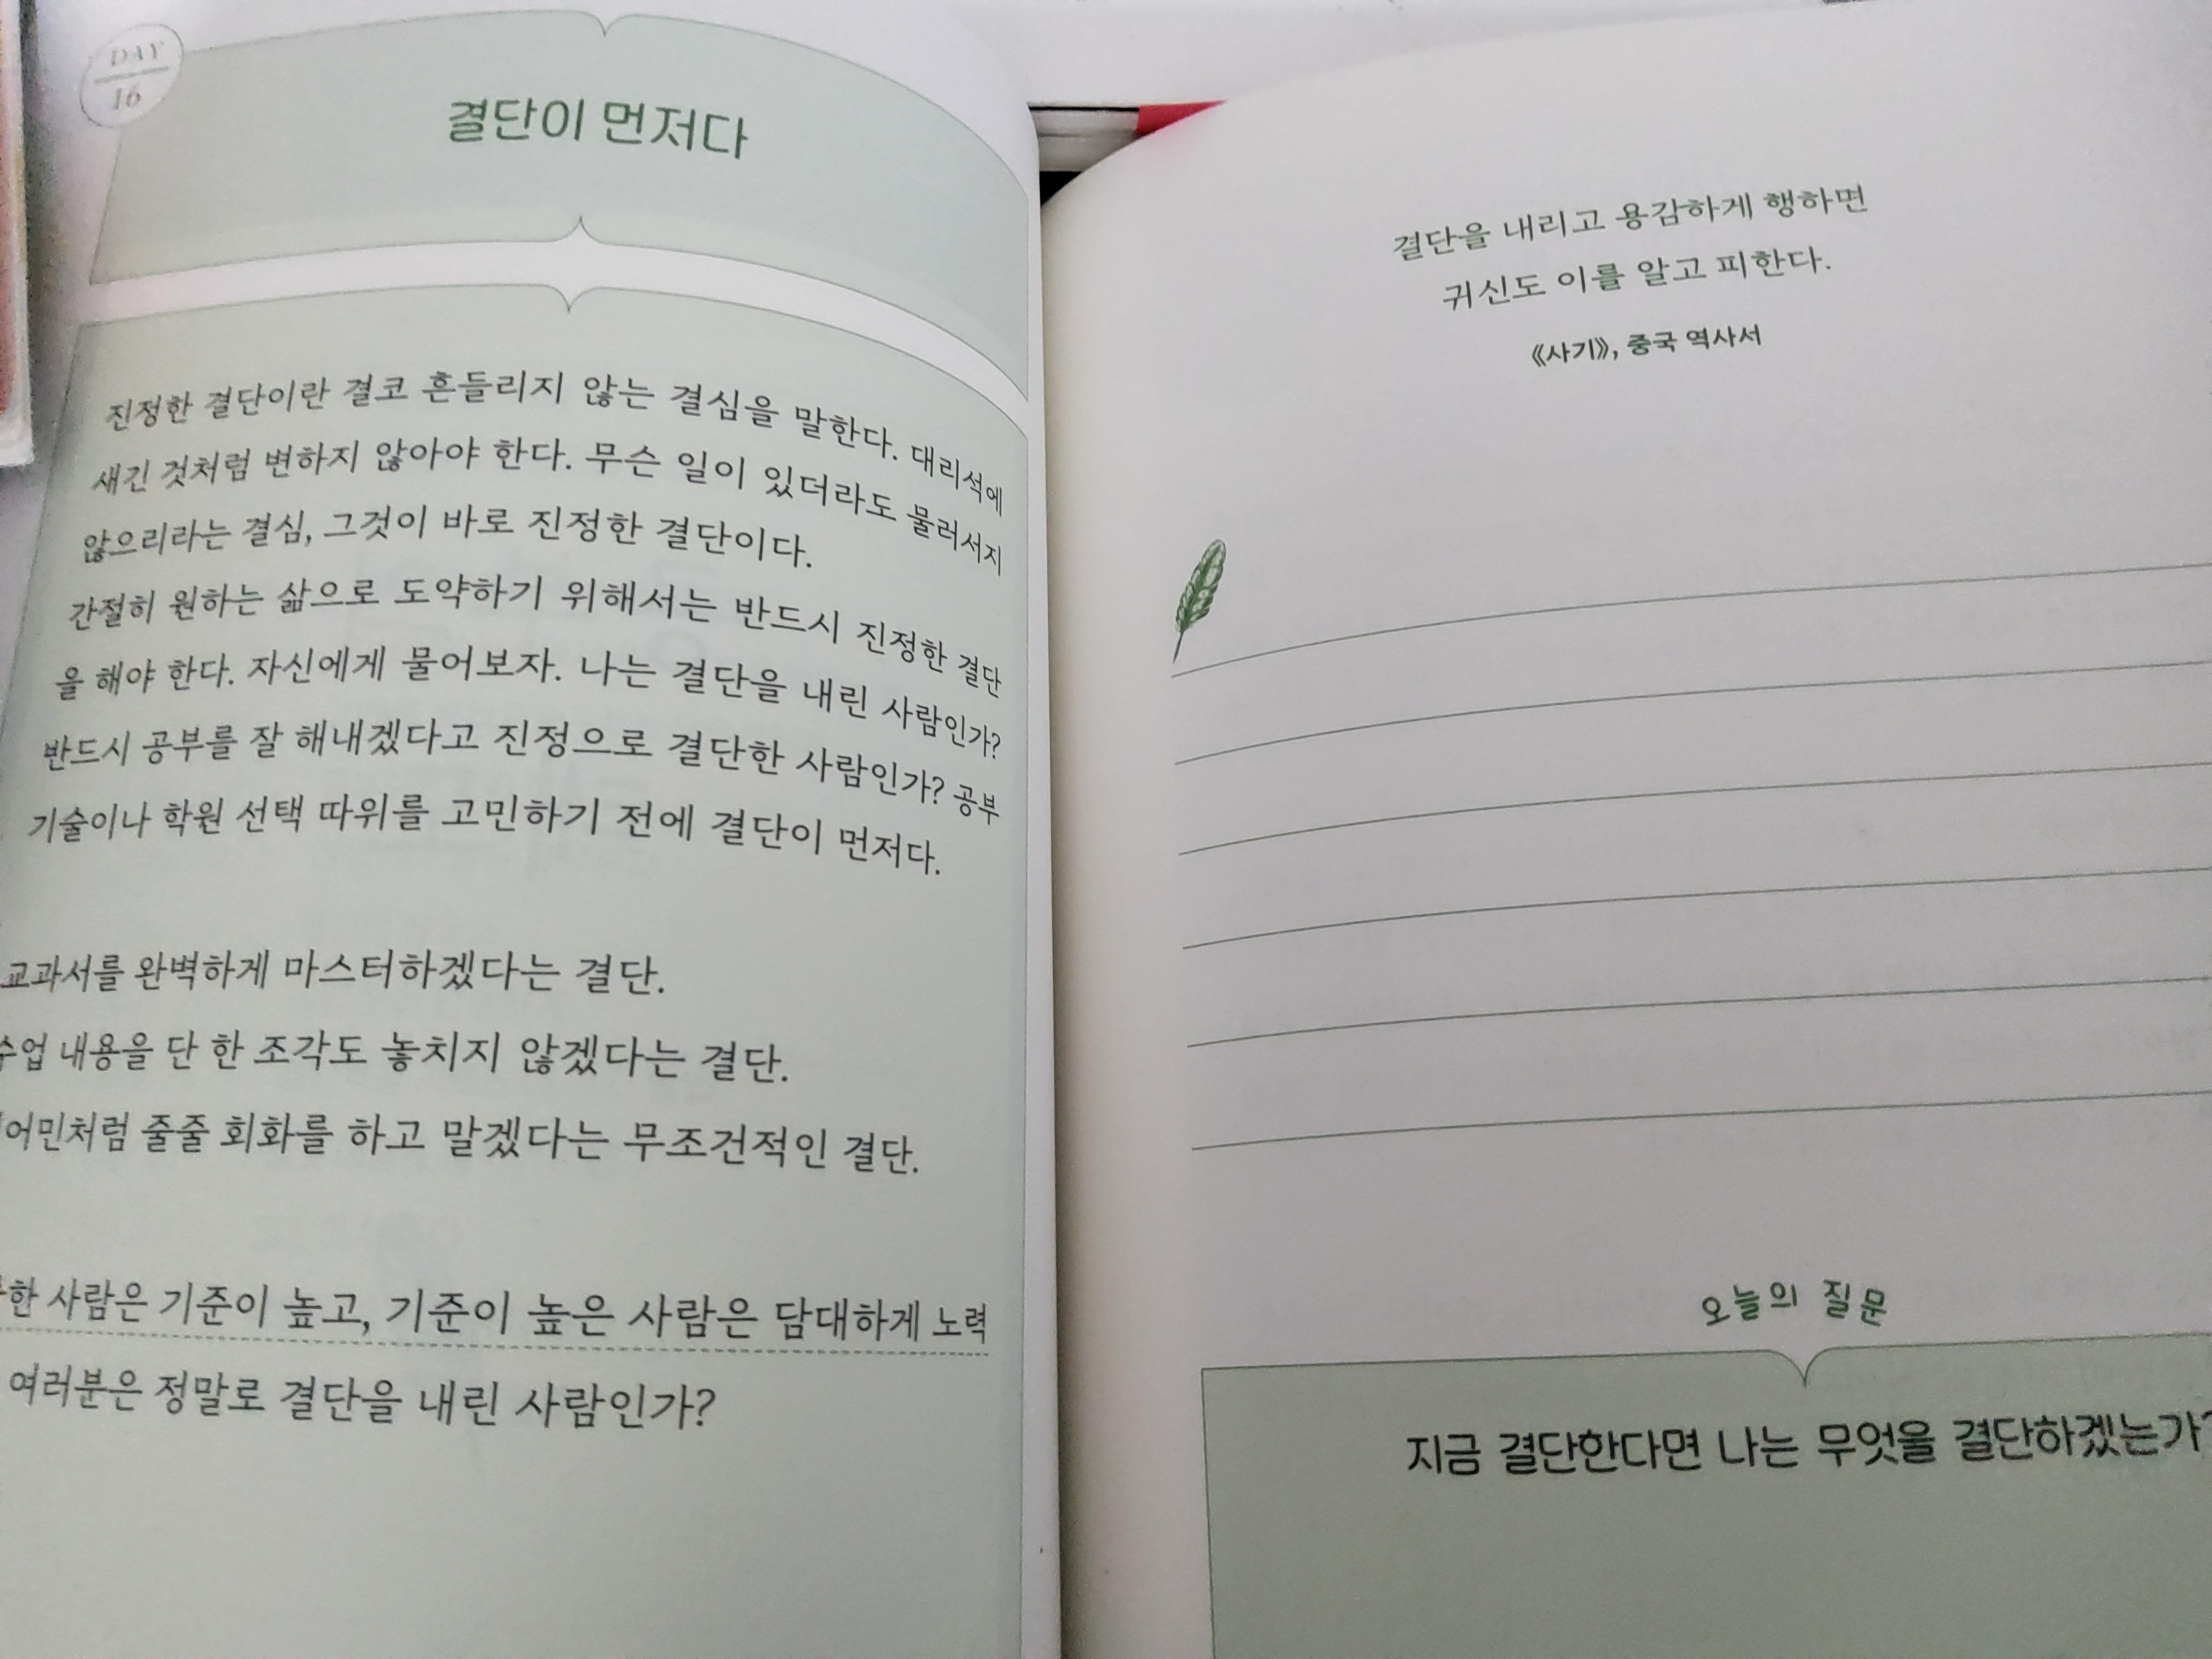 DAY
16
결단이 먼저다
진정한 결단이란 결코 흔들리지 않는 결심을 말한다. 대리석에
새긴 것처럼 변하지 않아야 한다. 무슨 일이 있더라도 물러서지
않으리라는 결심, 그것이 바로 진정한 결단이다.
간절히 원하는 삶으로 도약하기 위해서는 반드시 진정한 결단
을 해야 한다. 자신에게 물어보자. 나는 결단을 내린 사람인가?
반드시 공부를 잘 해내겠다고 진정으로 결단한 사람인가? 공부
기술이나 학원 선택 따위를 고민하기 전에 결단이 먼저다.
교과서를 완벽하게 마스터하겠다는 결단.
수업 내용을 단 한 조각도 놓치지 않겠다는 결단.
어민처럼 줄줄 회화를 하고 말겠다는 무조건적인 결단.
한 사람은 기준이 높고, 기준이 높은 사람은 담대하게 노력
여러분은 정말로 결단을 내린 사람인가?
결단을 내리고 용감하게 행하면
귀신도 이를 알고 피한다.
《사기》, 중국 역사서
오늘의 질문
지금 결단한다면 나는 무엇을 결단하겠는가?